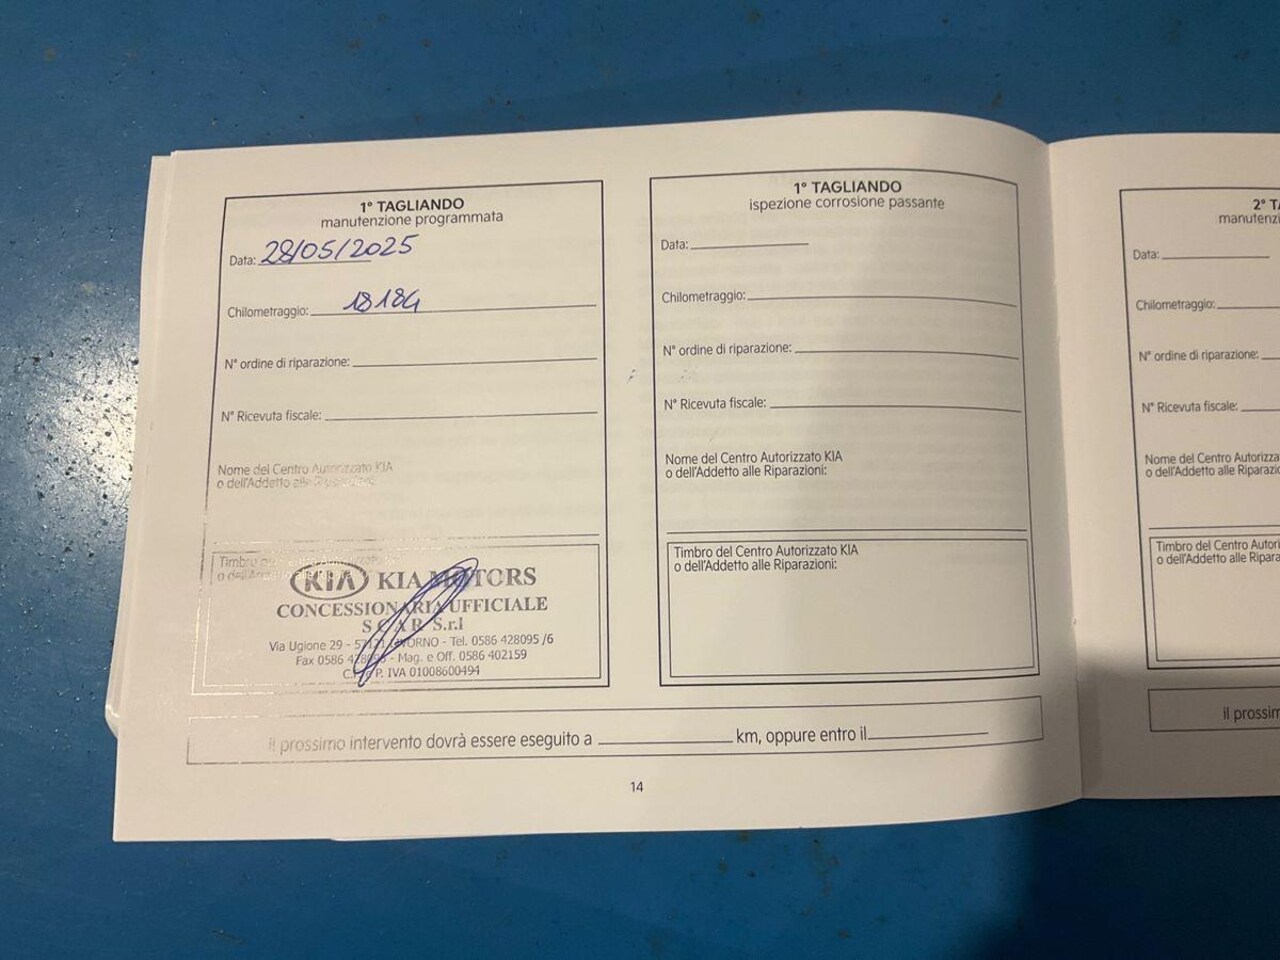 1° TAGLIANDO
manutenzione programmata
Data: 28/05/2025
Chilometraggio: 18184
N° ordine di riparazione:
N° Ricevuta fiscale:
Nome del Centro Autorizzato KIA
o dell'Addetto alle Riparazioni:
Timbro del Centro Autorizzato
o dell'Addetto alle
KIA KIA MOTORS
CONCESSIONARIA UFFICIALE
SCAR S.r.l
Via Ugione 29 - 57121 LIVORNO - Tel. 0586 428095 /6
Fax 0586 - Mag. e Off. 0586 402159
P. IVA 01008600494
1° TAGLIANDO
ispezione corrosione passante
Data:
Chilometraggio:
N° ordine di riparazione:
N° Ricevuta fiscale:
Nome del Centro Autorizzato KIA
o dell'Addetto alle Riparazioni:
Timbro del Centro Autorizzato KIA
o dell'Addetto alle Riparazioni:
il prossimo intervento dovrà essere eseguito a km, oppure entro il
14
2° TA
manutenzi
Data:
Chilometraggio:
N° ordine di riparazione:
N° Ricevuta fiscale:
Nome del Centro Autorizza
o dell'Addetto alle Riparazio
Timbro del Centro Autori
o dell'Addetto alle Ripara
il prossim